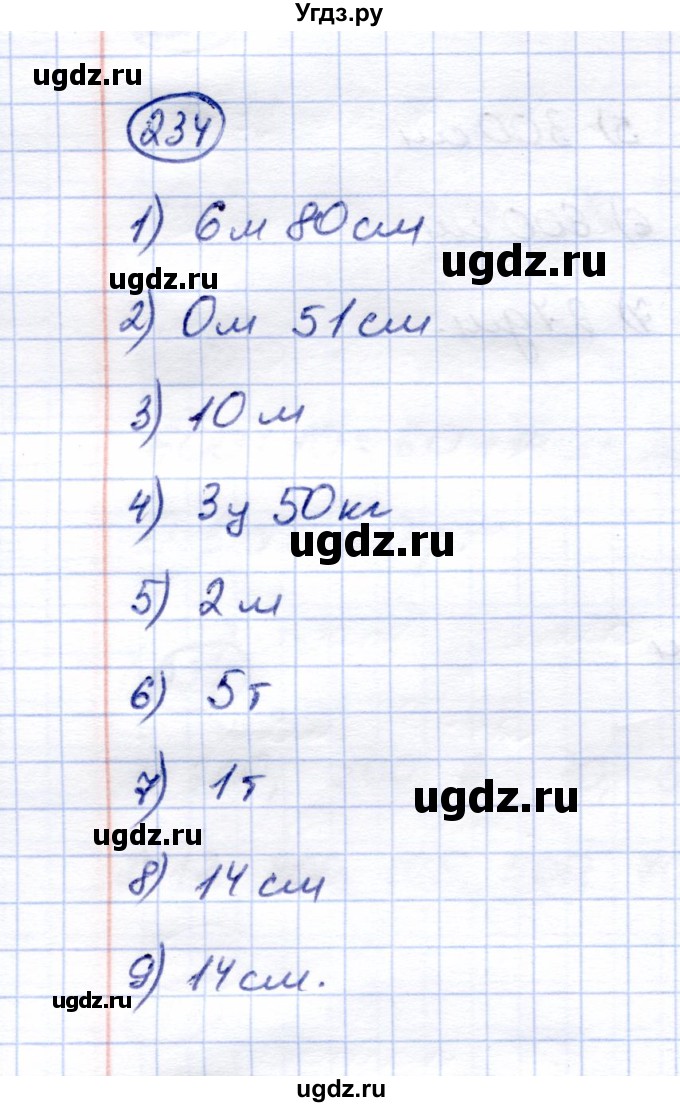 Угдз.ру
ugdz.ru
234
1) 6 м 80 см
ugdz.ru
ugdz.ru
2) 0 м 51 см
3) 10 м
4) 3 ц 50 кг
ugdz.ru
5) 2 м
6) 5 т
7) 1 т
ugdz.ru
ugdz.ru
8) 14 см
9) 14 см.
ugdz.ru
ugdz.ru